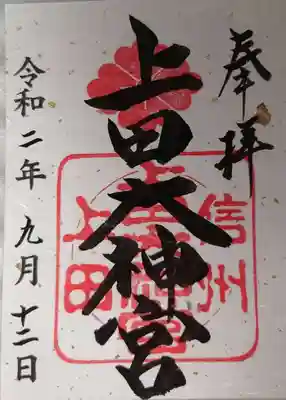 奉拝
上田大神宮
信州
上田
令和二年九月十二日